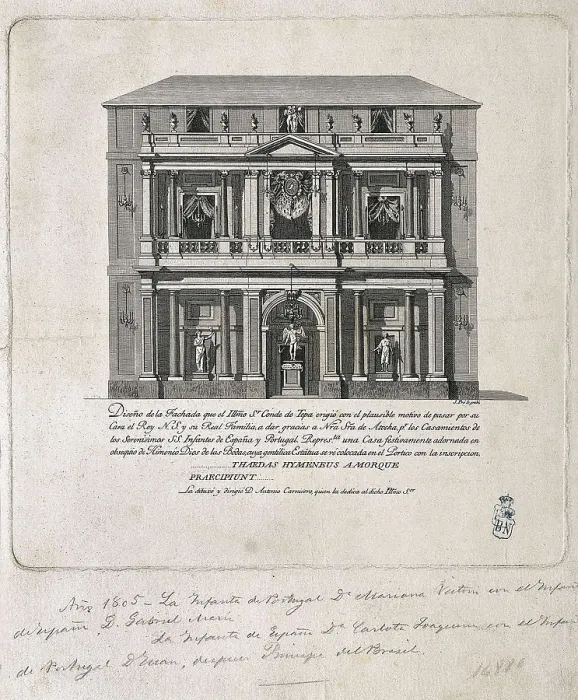 J. Pró lo grabó
Diseño de la Fachada que el Illmo Sor. Conde de Tepa erigió con el plausible motivo de pasar por su
Casa el Rey N. S. y su Real Familia, a dar gracias a Nra Sra de Atocha, pr. los Casamientos de
los Serenisimos SS. Infantes de España y Portugal. Represta. una Casa festivamente adornada en
obsequio de Himenéo Dios de las Bodas, cuya gentilica Estatua se ve colocada en el Portico con la inscripcion.
.................THAEDAS HYMENEUS AMORQUE
PRAECIPIUNT.......
La dibuxó y dirigió D. Antonio Carnicero, quien la dedica al dicho Illmo Sor.
BN
Año 1805 - La Infanta de Portugal Da. Mariana Victoria con el Infante
de españa D. Gabriel
La Infanta de España Da. Carlota Joaquina con el Infante
de Portugal D. Juan, despues Principe del Brasil.